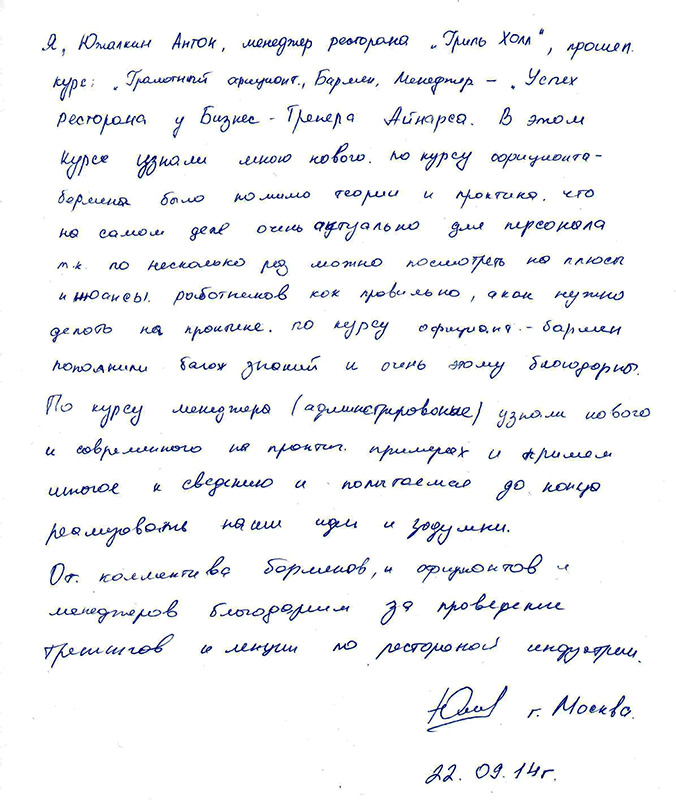 Я, Южалкин Антон, менеджер ресторана „Гриль Холл", прошел.
курс: „Грамотный официант., Бармен, Менеджер – „Успех
Ресторана у Бизнес-Тренера Айнарса. В этом
курсе узнали много нового. по курсу официанта-
бармена было помимо теории и практика. что
на самом деле очень актуально для персонала
т.к. по несколько раз можно посмотреть на плюсы
и нюансы. работников как правильно, а как нужно
делать на практике. по курсу официант.-бармен
пополнили багаж знаний и очень этому благодарны.
По курсу менеджера (администрирование) узнали нового
и современного на практич. примерах и примем
многое к сведению и попытаемся до конца
реализовать наши идеи и задумки.
От. коллектива барменов, и официантов и
менеджеров благодарим за проведение
тренингов и лекции по ресторанной индустрии.
г. Москва.
22.09.14г.